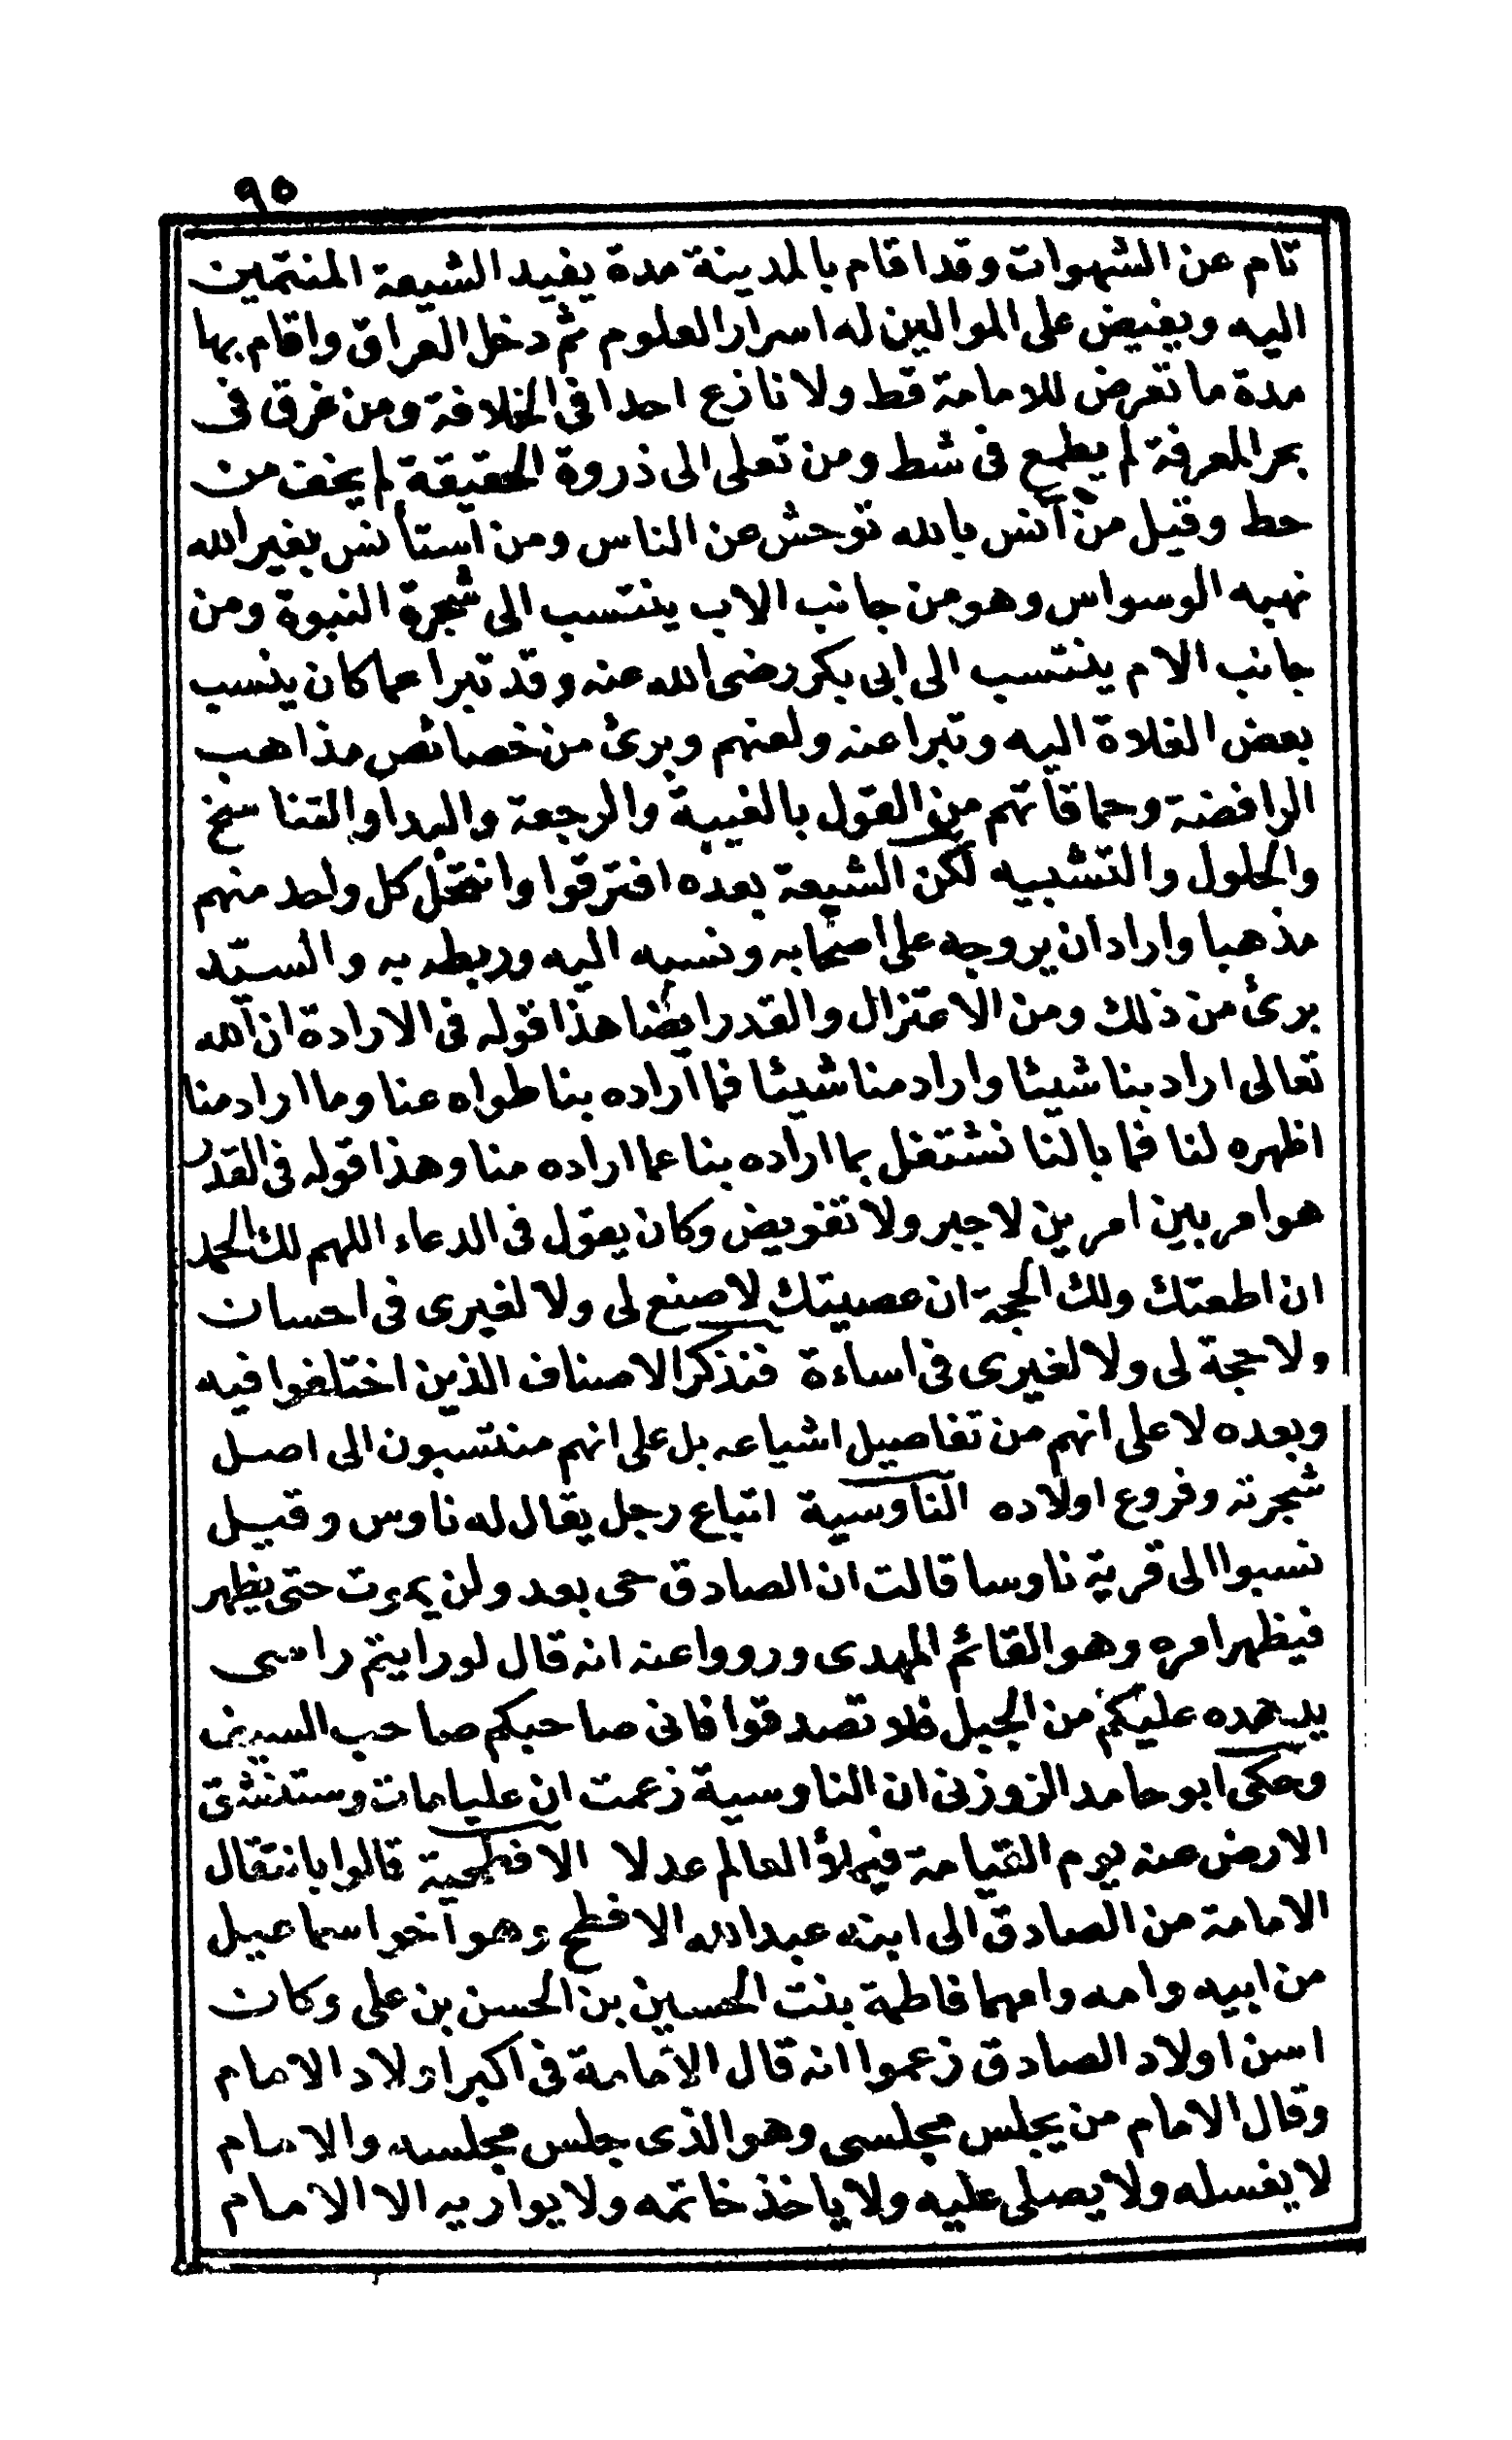 ٩٥
تام عن الشهوات وقد اقام بالمدينة مدة يفيد الشيعة المنتمين
اليه ويفيض على الموالين له اسرار العلوم ثم دخل العراق واقام بها
مدة ما تعرض للامامة قط ولا نازع احدا فى الخلافة ومن غرق فى
بحر المعرفة لم يطمع فى شط ومن تعلى الى ذروة الحقيقة لم يخف من
حط وقيل من آنس بالله توحش عن الناس ومن استأنس بغير الله
نهبه الوسواس وهو من جانب الاب ينتسب الى شجرة النبوة ومن
جانب الام ينتسب الى ابى بكر رضى الله عنه وقد تبرا عما كان ينسب
بعض الغلاة اليه وتبرا عنه ولعنهم وبرئ من خصائص مذاهب
الرافضة وحماقاتهم من القول بالغيبة والرجعة والبدا والتناسخ
والحلول والتشبيه لكن الشيعة بعده افترقوا وانتحل كل واحد منهم
مذهبا واراد ان يروجه على اصحابه ونسبه اليه وربطه به والسيّد
برئ من ذلك ومن الاعتزال والقدر ايضا هذا قوله فى الارادة ان الله
تعالى اراد بنا شيئا واراد منا شيئا فما اراده بنا طواه عنا وما اراد منا
اظهره لنا فما بالنا نشتغل بما اراده بنا عما اراده منا وهذا قوله فى القدر
هو امر بين امرين لا جبر ولا تفويض وكان يقول فى الدعاء اللهم لك الحمد
ان اطعتك ولك الحجة ان عصيتك لا صنع لى ولا لغيرى فى احسان
ولا حجة لى ولا لغيرى فى اساءة فنذكر الاصناف الذين اختلفوا فيه
وبعده لا على انهم من تفاصيل اشياعه بل على انهم منتسبون الى اصل
شجرته وفروع اولاده الناوسية اتباع رجل يقال له ناوس وقيل
نسبوا الى قرية ناوسا قالت ان الصادق حى بعد ولن يموت حتى يظهر
فيظهر امره وهو القائم المهدى ورووا عنه انه قال لو رايتم راسى
يدهده عليكم من الجبل فلا تصدقوا فانى صاحبكم صاحب السيف
وحكى ابو حامد الزوزنى ان الناوسية زعمت ان عليا مات وستنشق
الارض عنه يوم القيامة فيملأ العالم عدلا الافطحية قالوا بانتقال
الامامة من الصادق الى ابنه عبدالله الافطح وهو اخو اسماعيل
من ابيه وامه وامهما فاطمة بنت الحسين بن الحسن بن على وكان
اسن اولاد الصادق زعموا انه قال الامامة فى اكبر اولاد الامام
وقال الامام من يجلس مجلسى وهو الذى جلس مجلسه والامام
لا يغسله ولا يصلى عليه ولا ياخذ خاتمه ولا يواريه الا الامام